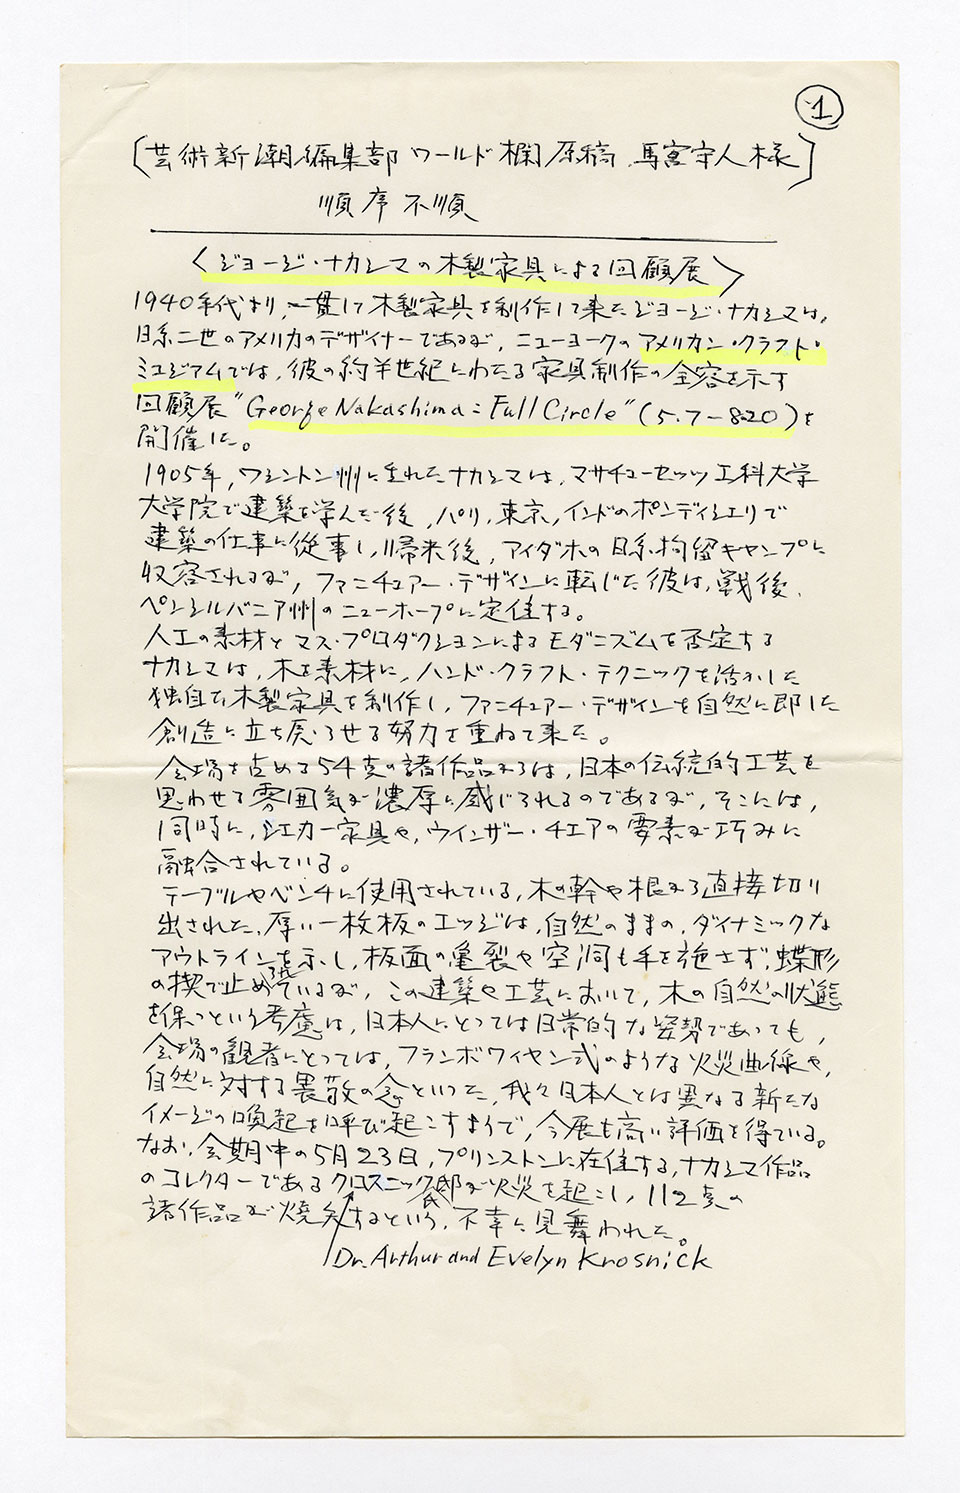 1
[芸術新潮編集部 ワールド欄原稿、馬宮守人様]
順序不順
〈ジョージ・ナカシマの木製家具による回顧展〉
1940年代より、一貫して木製家具を制作して来たジョージ・ナカシマは、
日系二世のアメリカのデザイナーであるが、ニューヨークのアメリカン・クラフト・
ミュジアムでは、彼の約半世紀にわたる家具制作の全容を示す
回顧展"George Nakashima: Full Circle"(5.7-8.20)を
開催した。
1905年、ワシントン州に生れたナカシマは、マサチューセッツ工科大学
大学院で建築を学んだ後、パリ、東京、インドのポンディシェリで
建築の仕事に従事し、帰米後、アイダホの日系拘留キャンプに
収容されるが、ファニチュアー・デザインに転じた彼は、戦後、
ペンシルバニア州のニューホープに定住する。
人工の素材とマス・プロダクションによるモダニズムを否定する
ナカシマは、木を素材に、ハンド・クラフト・テクニックを活かした
独自な木製家具を制作し、ファニチュアー・デザインを自然に即した
創造に立ち戻らせる努力を重ねて来た。
会場を占める54点の諸作品からは、日本の伝統的工芸を
思わせる雰囲気が濃厚に感じられるのであるが、そこには、
同時に、シェカー家具や、ウインザー・チェアの要素が巧みに
融合されている。
テーブルやベンチに使用されている、木の幹や根から直接切り
出された、厚い一枚板のエッジは、自然のままの、ダイナミックな
アウトラインを示し、板面の亀裂や空洞も手を施さず、蝶形
の楔で止められているが、この建築や工芸において、木の自然の状態
を保つという考慮は、日本人にとっては日常的な姿勢であっても、
会場の観者にとっては、フランボワイヤン式のような火災曲線や、
自然に対する畏敬の念といった、我々日本人とは異なる新たな
イメージの喚起を呼び起こすようで、今展も高い評価を得ている。
なお、会期中の5月23日、プリンストンに在住する、ナカシマ作品
のコレクターであるクロスニック氏邸が火災を起こし、112点の
諸作品が焼失するという、不幸に見舞われた。
Dr. Arthur and Evelyn Krosnick